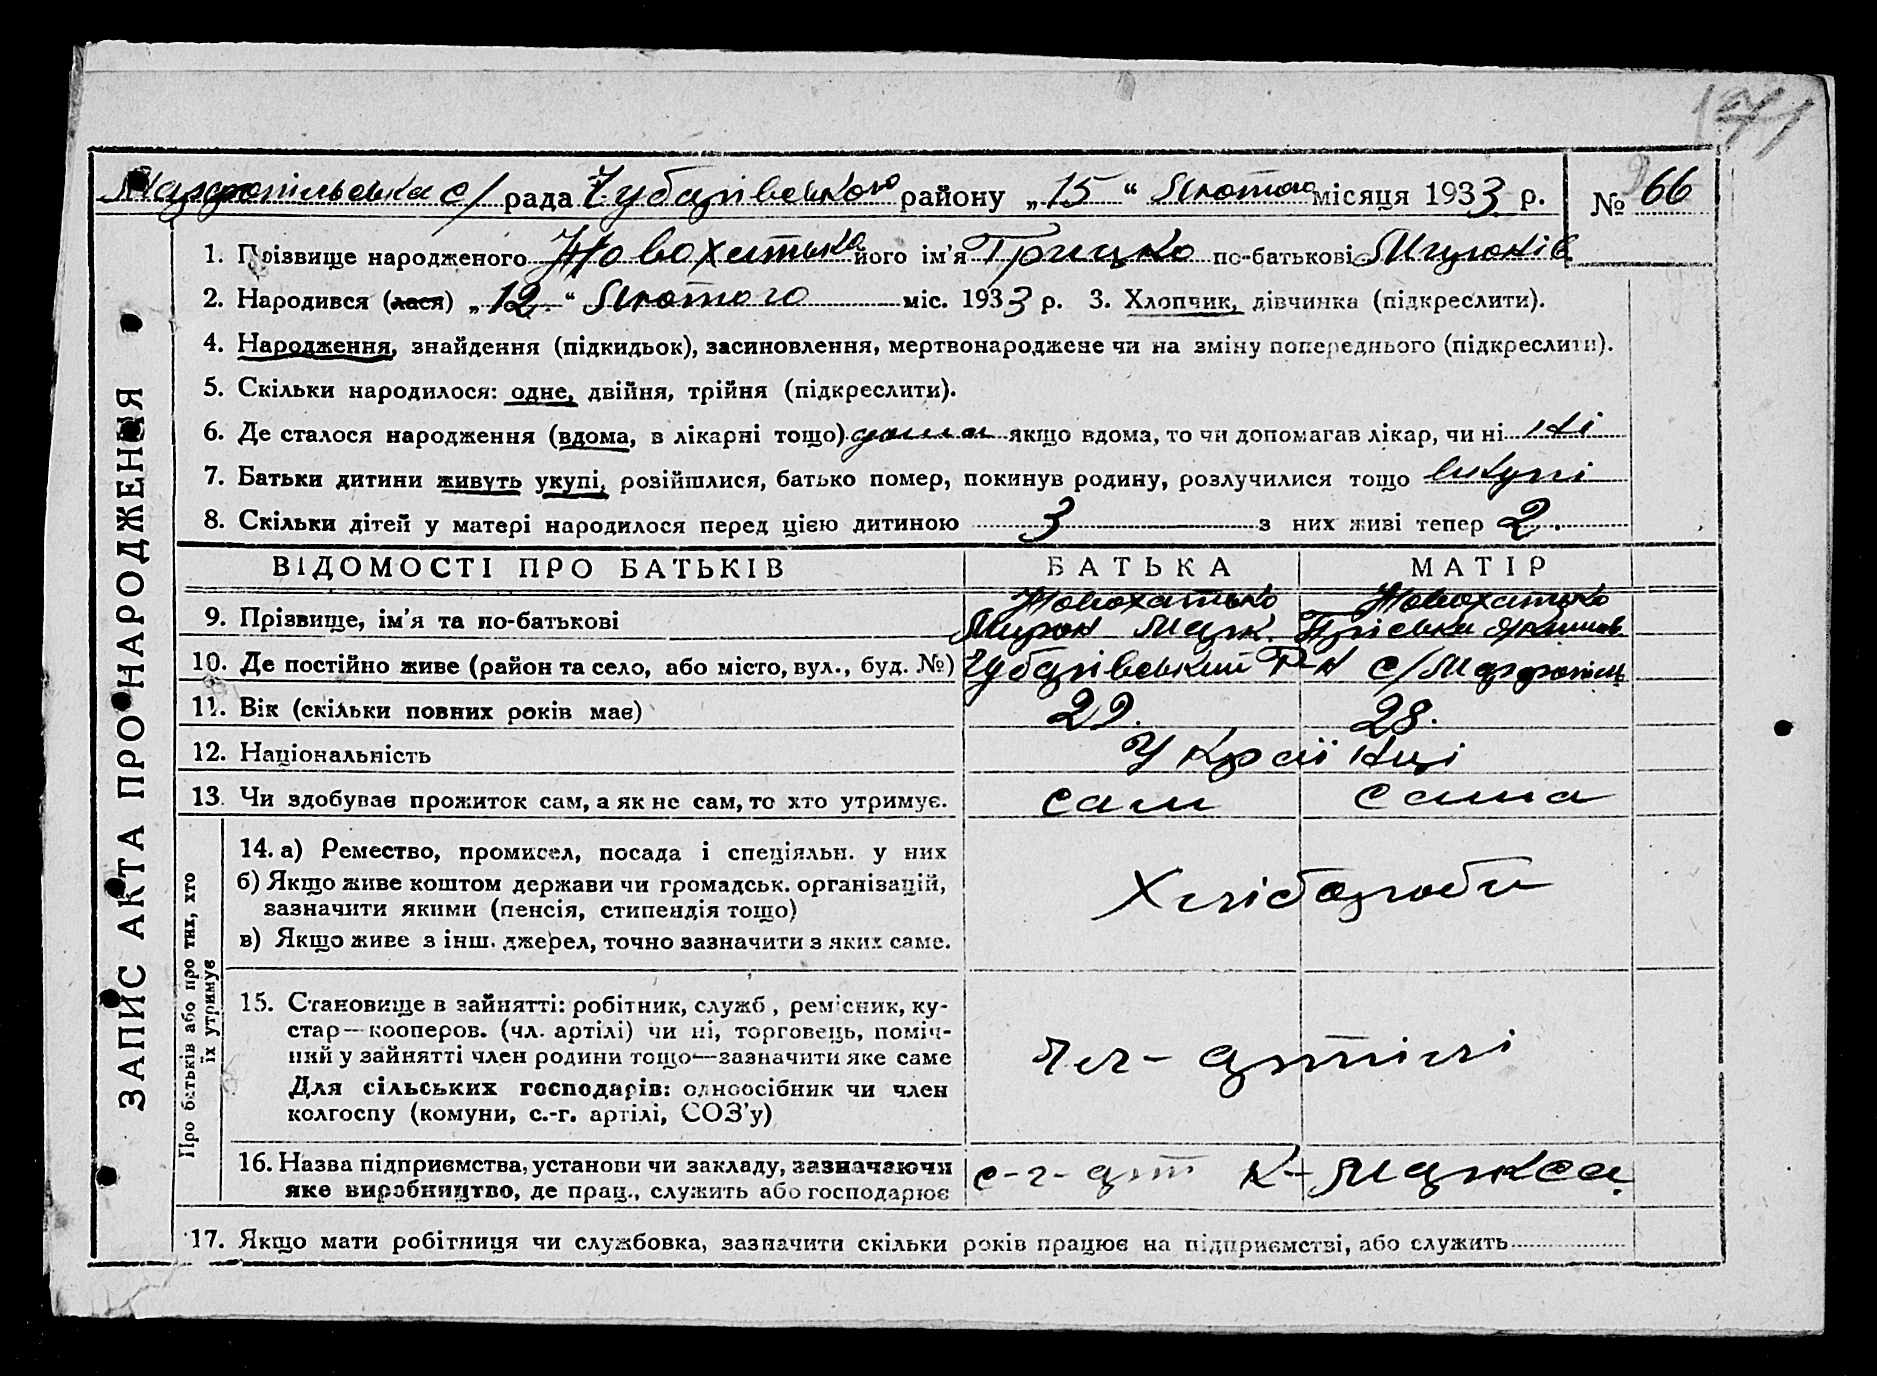 171
Марфопільська с/ рада Чубарівського району „15“ Лютого місяця 1933 р. № 66
1. Прізвище народженого Новохатько його ім'я Грицко по-батькові
2. Народився (лася) „12“ Лютого міс. 1933 р. 3. Хлопчик, дівчинка (підкреслити).
4. Народження, знайдення (підкидьок), засиновлення, мертвонароджене чи на зміну попереднього (підкреслити).
5. Скільки народилося: одне, двійня, трійня (підкреслити).
6. Де сталося народження (вдома, в лікарні тощо) дома якщо вдома, то чи допомагав лікар, чи ні ні
7. Батьки дитини живуть укупі, розійшлися, батько помер, покинув родину, розлучилися тощо вкупі
8. Скільки дітей у матері народилося перед цією дитиною 3 з них живі тепер 2.
ВІДОМОСТІ ПРО БАТЬКІВ БАТЬКА МАТІР
9. Прізвище, ім'я та по-батькові Новохатько Мирон Марк. Новохатько Пріська Якимов
10. Де постійно живе (район та село, або місто, вул., буд. №) Чубарівський Р-н с/Марфопіль
11. Вік (скільки повних років має) 29. 28.
12. Національність Українці
13. Чи здобував прожиток сам, а як не сам, то хто утримує. сам сама
14. а) Ремество, промисел, посада і спеціяльн. у них
б) Якщо живе коштом держави чи громадськ. організацій,
зазначити якими (пенсія, стипендія тощо)
в) Якщо живе з інш. джерел, точно зазначити з яких саме.
Хлібороби
15. Становище в зайнятті: робітник, служб., ремісник, ку-
стар—кооперов. (чл. артілі) чи ні, торговець, поміч-
ний у зайнятті член родини тощо—зазначити яке саме
Для сільських господарів: одноосібник чи член
колгоспу (комуни, с.-г. артілі, СОЗ'у)
Чл- артілі
16. Назва підприємства, установи чи закладу, зазначаючи
яке виробництво, де прац., служить або господарює
с-г- арт К- Маркса.
17. Якщо мати робітниця чи службовка, зазначити скільки років працює на підприємстві, або служить
ЗАПИС АКТА ПРО НАРОДЖЕННЯ
Про батьків або про тих, хто
їх утримує